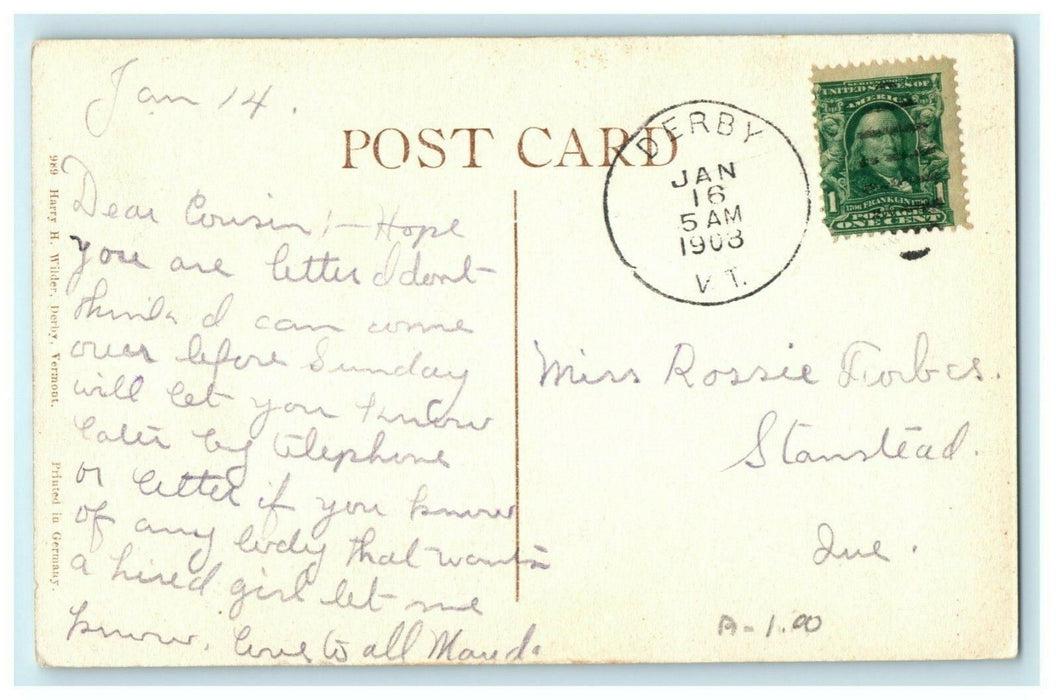 Jan 14.
POST CARD
DERBY
JAN
16
5 AM
1908
VT.
SERIES 1902
UNITED STATES OF
AMERICA
1706 FRANKLIN 1790
1 1
POSTAGE
ONE CENT
Dear Cousin!— Hope
you are better I dont
think I can come
over before Sunday
will let you know
later by telephone
or letter if you know
of any body that wants
a hired girl let me
know. Love to all Maud.
Miss Rossie Forbes.
Stanstead.
Que.
A-1.00
989 Harry H. Wilder, Derby, Vermont. Printed in Germany.